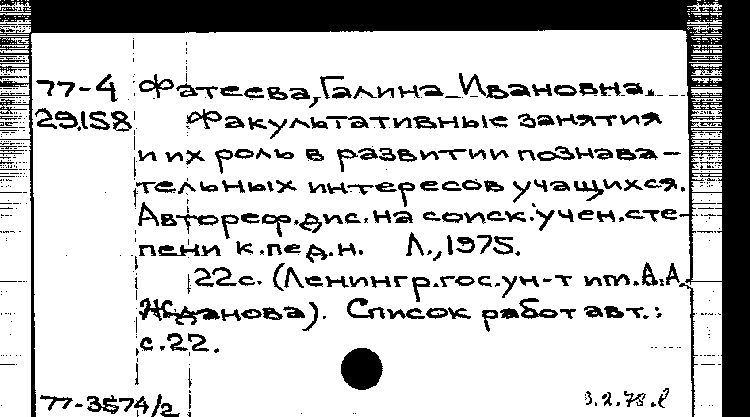 77-4 Фатеева, Галина Ивановна.
29158 Факультативные занятия
и их роль в развитии познава-
тельных интересов учащихся.
Автореф.дис.на соиск.учен.сте-
пени к.пед.н. Л.,1975.
22с. (Ленингр.гос.ун-т им.А.А.
Жданова). Список работ авт.:
с.22.
77-3574/2